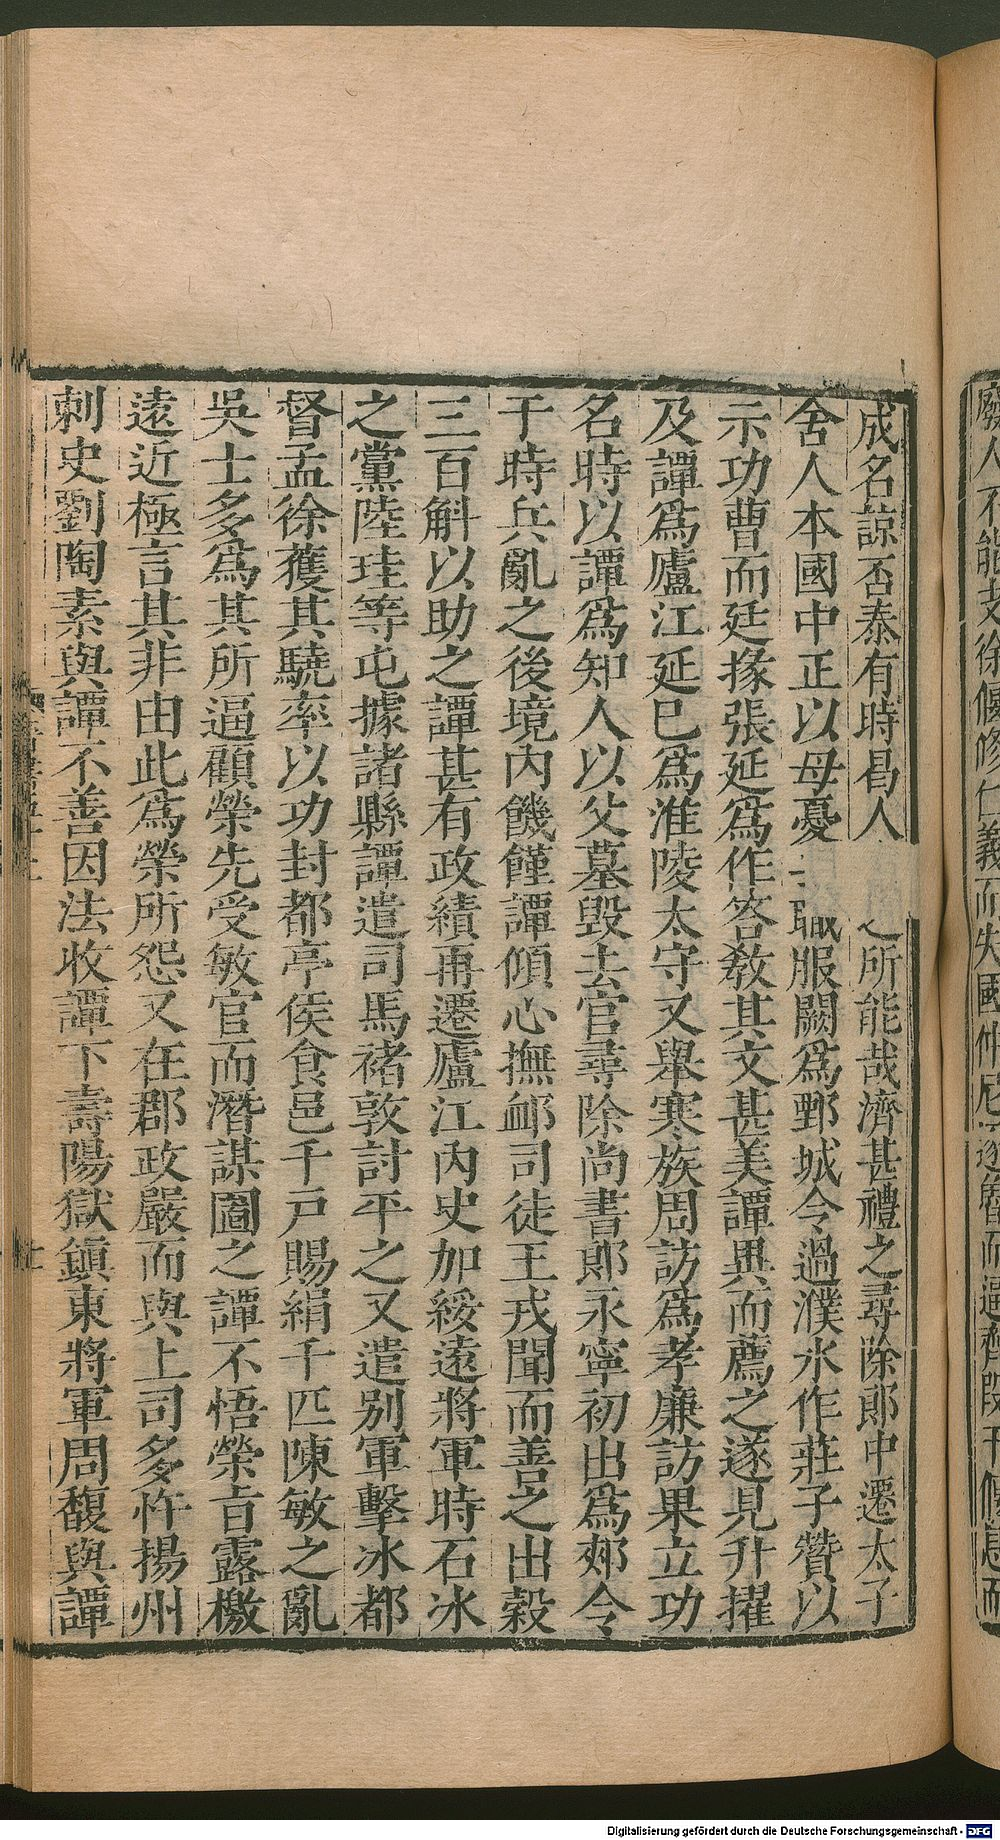 成名諒否泰有時曷人之所能哉濟甚禮之尋除郎中遷太子
舍人本國中正以母憂職服闕爲鄄城令過濮水作莊子贊以
示功曹而廷掾張延爲作答教其文甚美譚異而薦之遂見升擢
及譚爲廬江延已爲淮陵太守又舉寒族周訪爲孝廉訪果立功
名時以譚爲知人以父墓毀去官尋除尚書郎永寧初出爲郟令
于時兵亂之後境内饑饉譚傾心撫衈司徒王戎聞而善之出穀
三百斛以助之譚甚有政績再遷廬江内史加綏遠將軍時石冰
之黨陸珪等屯據諸縣譚遣司馬褚敦討平之又遣别軍擊冰都
督孟徐獲其驍率以功封都亭侯食邑千戸賜絹千匹陳敏之亂
吳士多爲其所逼顧榮先受敏官而潛謀圖之譚不悟榮旨露檄
遠近極言其非由此爲榮所怨又在郡政嚴而與上司多忤揚州
刺史劉陶素與譚不善因法收譚下壽陽獄鎮東將軍周馥與譚
廢人不能去徐偃修仁義而失國仲尼逐魯而逼齊段干偃息而
Digitalisierung gefördert durch die Deutsche Forschungsgemeinschaft - DFG